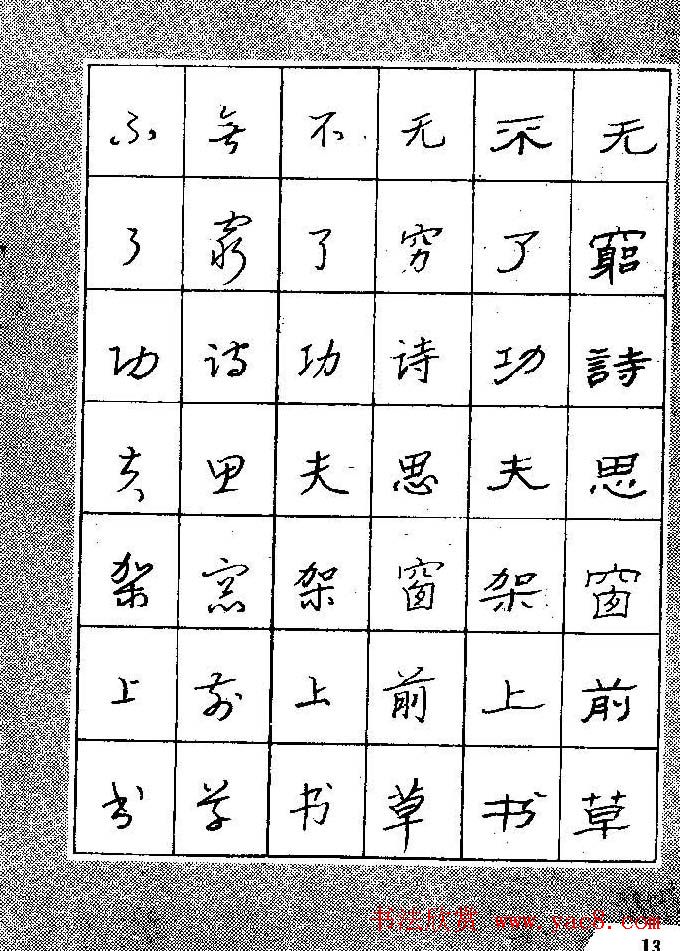 无窮詩思窗前草
不了功夫架上书
无穷诗思窗前草
不了功夫架上书
無窮诗思窗前草
不了功夫架上书
书法欣赏 www.yac8.com
13